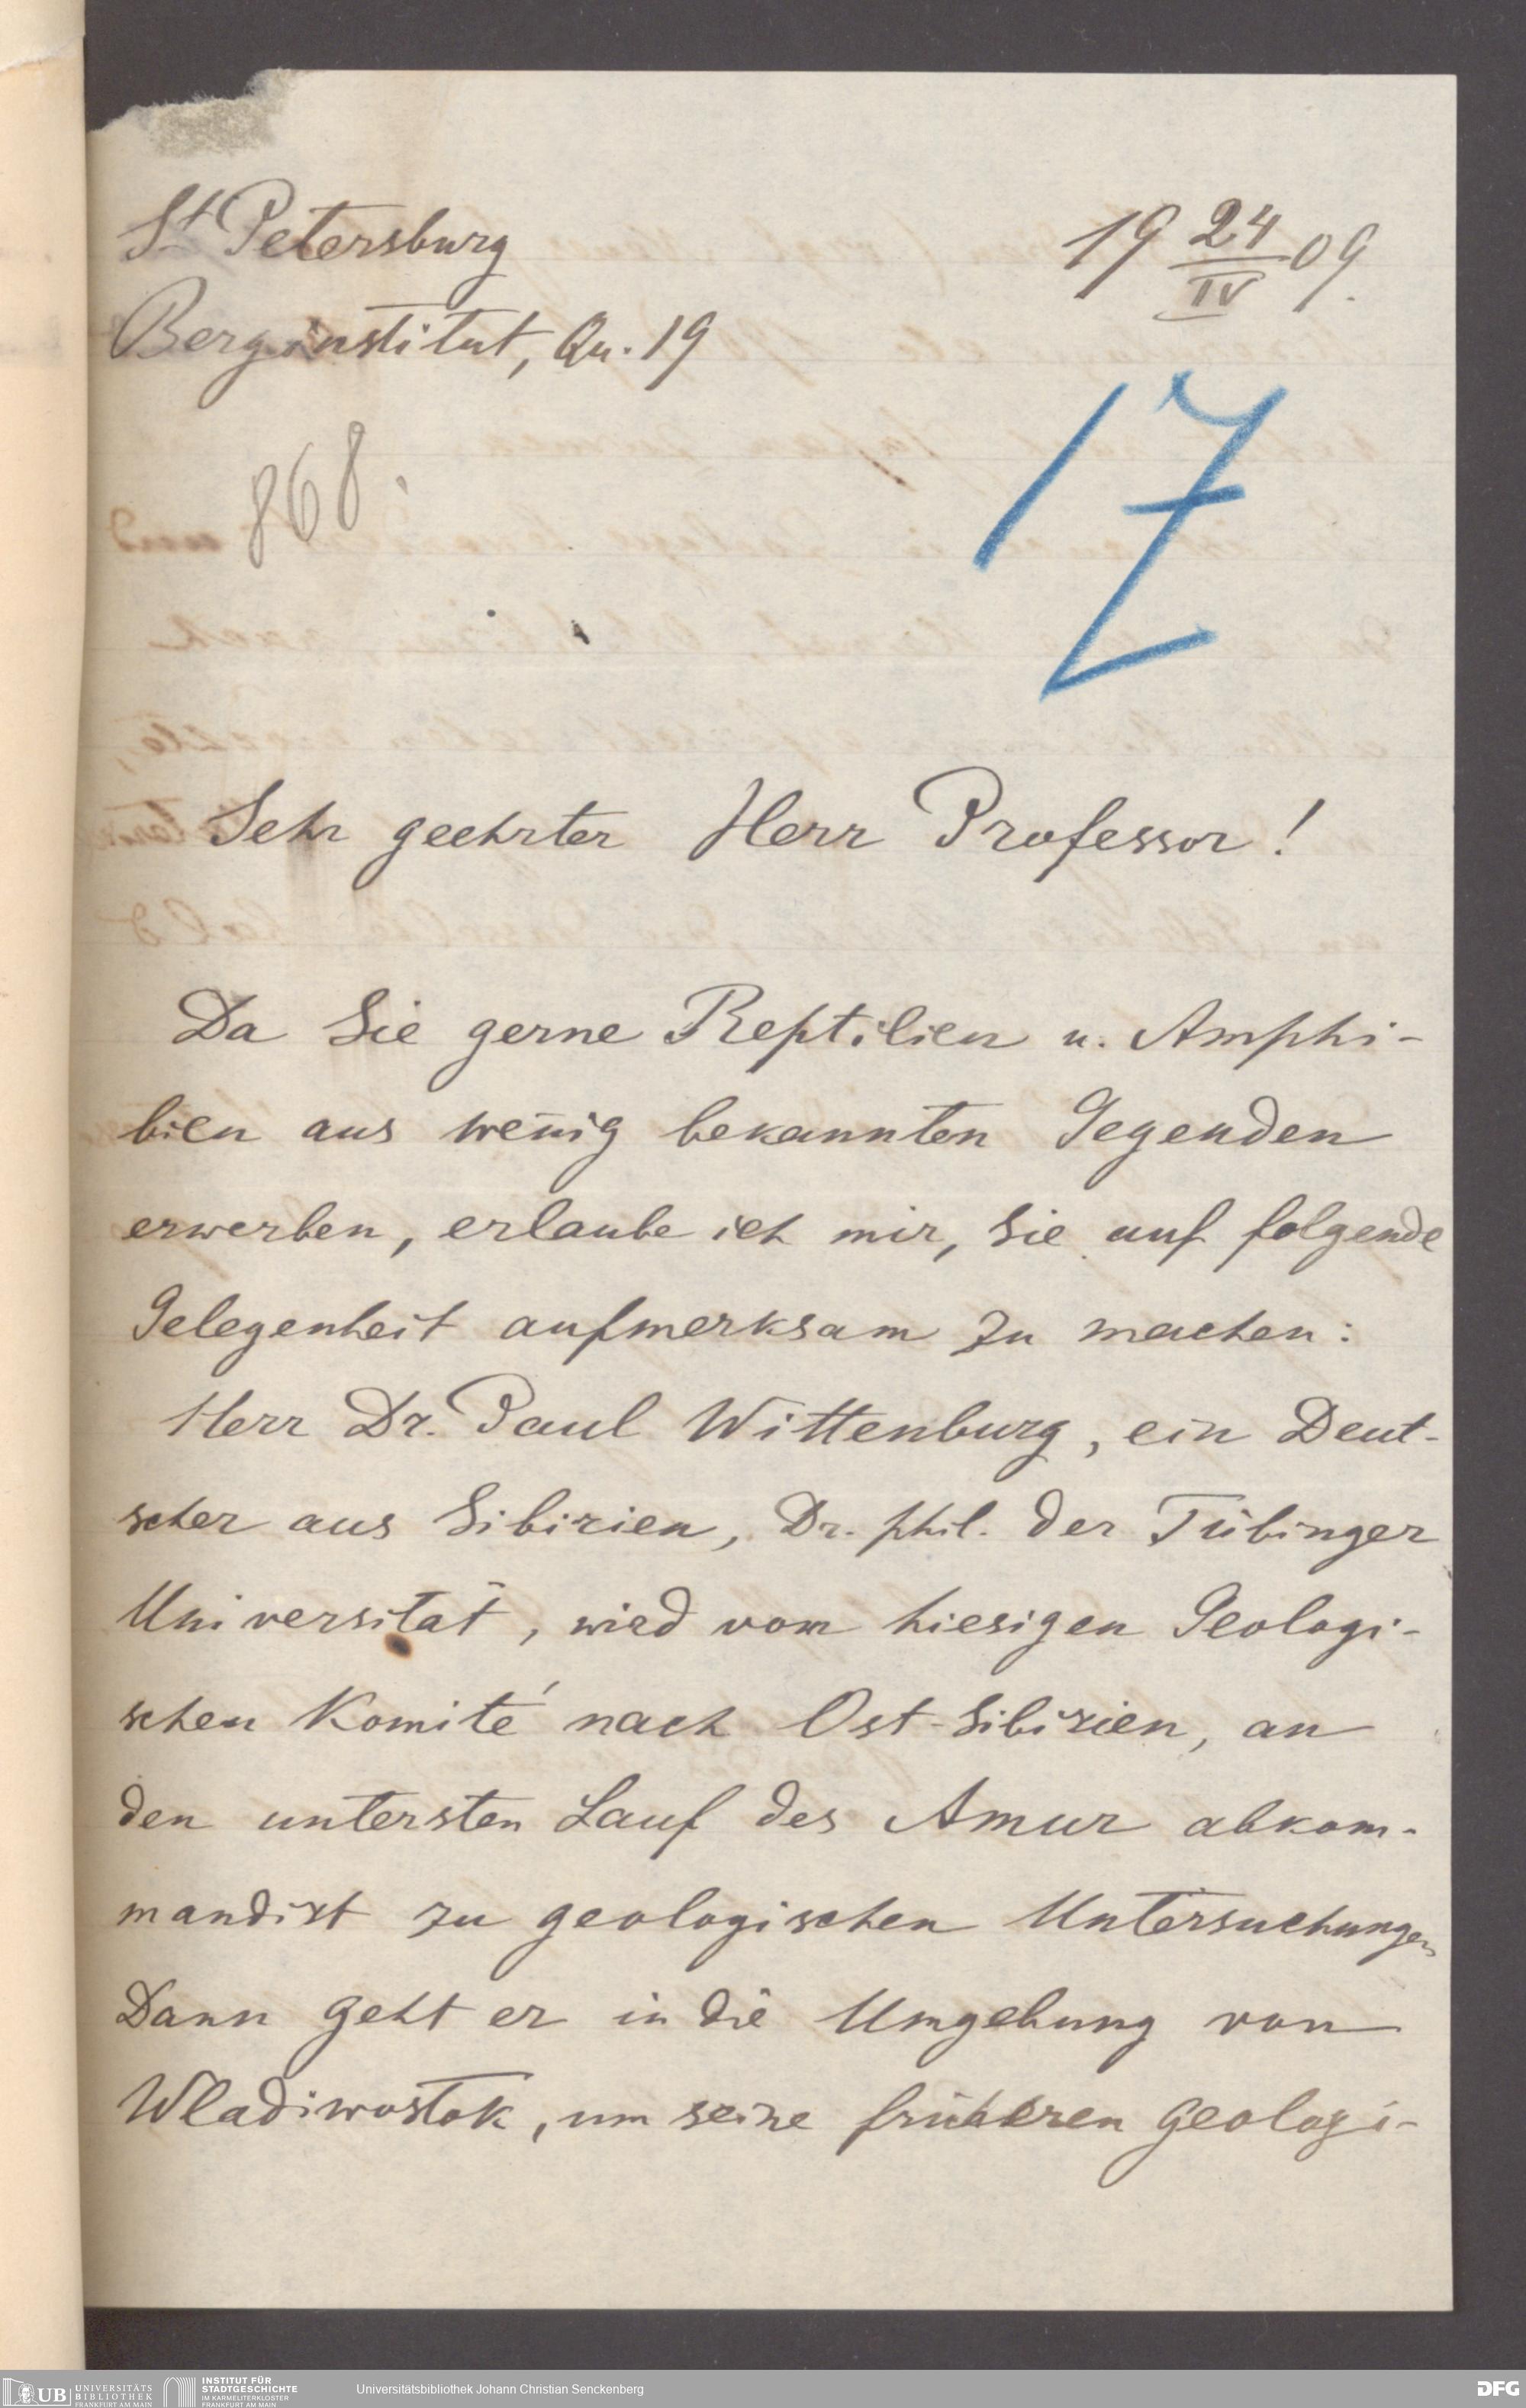 St Petersburg
19 24/IV 09.
Berginstitut, Qu. 19
868.
17
Sehr geehrter Herr Professor!
Da Sie gerne Reptilien u. Amphi-
bien aus wenig bekannten Gegenden
erwerben, erlaube ich mir, Sie auf folgende
Gelegenheit aufmerksam zu machen:
Herr Dr. Paul Wittenburg, ein Deut-
scher aus Sibirien, Dr. phil. der Tübinger
Universität, wird vom hiesigen Geologi-
schen Komité nach Ost-Sibirien, an
den untersten Lauf des Amur abkom-
mandirt zu geologischen Untersuchungen
Dann geht er in die Umgebung von
Wladiwostok, um seine früheren geologi-
UB UNIVERSITÄTS
BIBLIOTHEK
FRANKFURT AM MAIN
INSTITUT FÜR
STADTGESCHICHTE
IM KARMELITERKLOSTER
FRANKFURT AM MAIN
Universitätsbibliothek Johann Christian Senckenberg
DFG